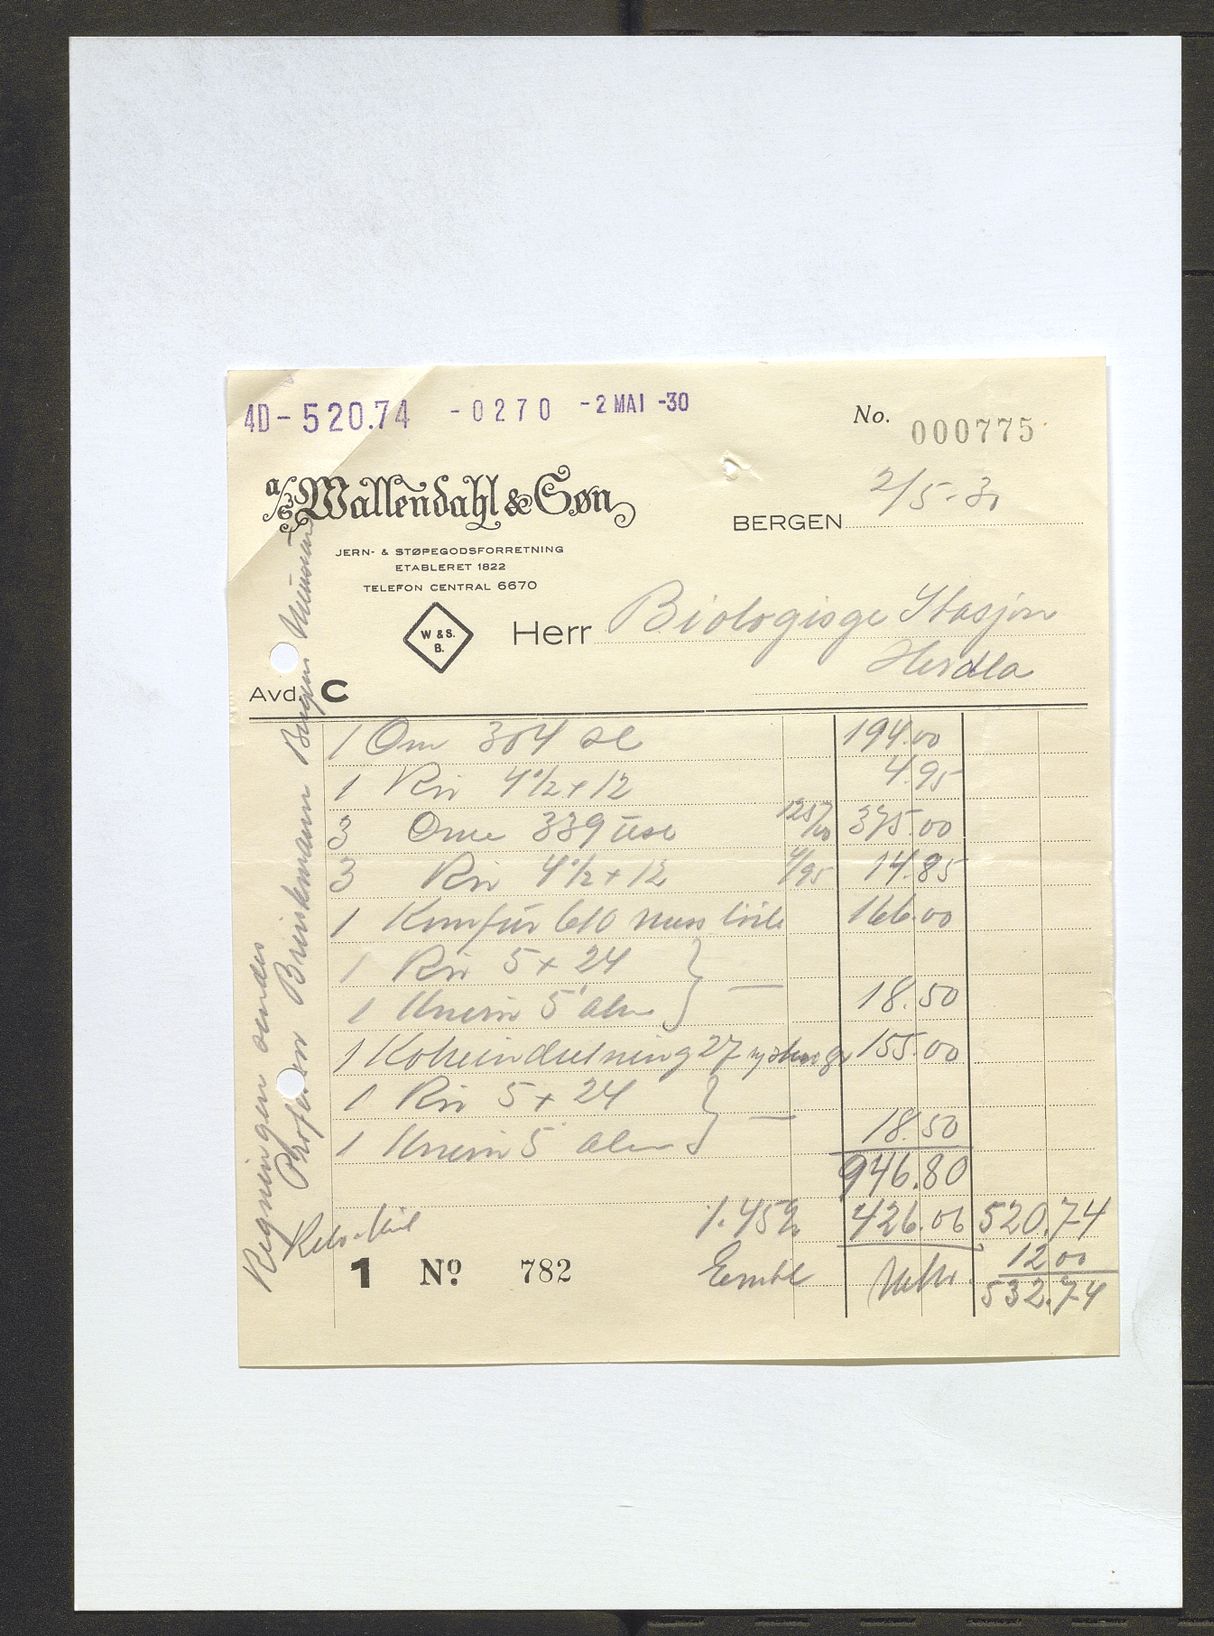 4D-520.74 -0270 -2 MAI -30
No. 000775
A/S Wallendahl & Søn
BERGEN 2/5-30
JERN- & STØPEGODSFORRETNING
ETABLERET 1822
TELEFON CENTRAL 6670
W & S. B.
Herr Biologisge Stasjon
Herdla
Avd. C
1 Ovn 304 194.00
1 Rør 4½ x 12 4.95
3 Ovne 339 125/00 375.00
3 Rør 4½ x 12 4/95 14.85
1 Komfür 610 166.00
1 Rør 5 x 24
1 5" 18.50
1 27 155.00
1 Rør 5 x 24
1 5" 18.50
946.80
÷ 45% 426.06 520.74
Emble 12 00
532.74
1 Nº 782
Regningen sendes
Professor Brinkmann Bergens Museum